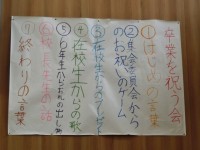 卒業を祝う会
①はじめの言葉
②集会委員会から
のお祝いのゲーム
③在校生からのプレゼント
④在校生からの歌
⑤6年生からのお礼の出し物
⑥校長先生の話
⑦終わりの言葉